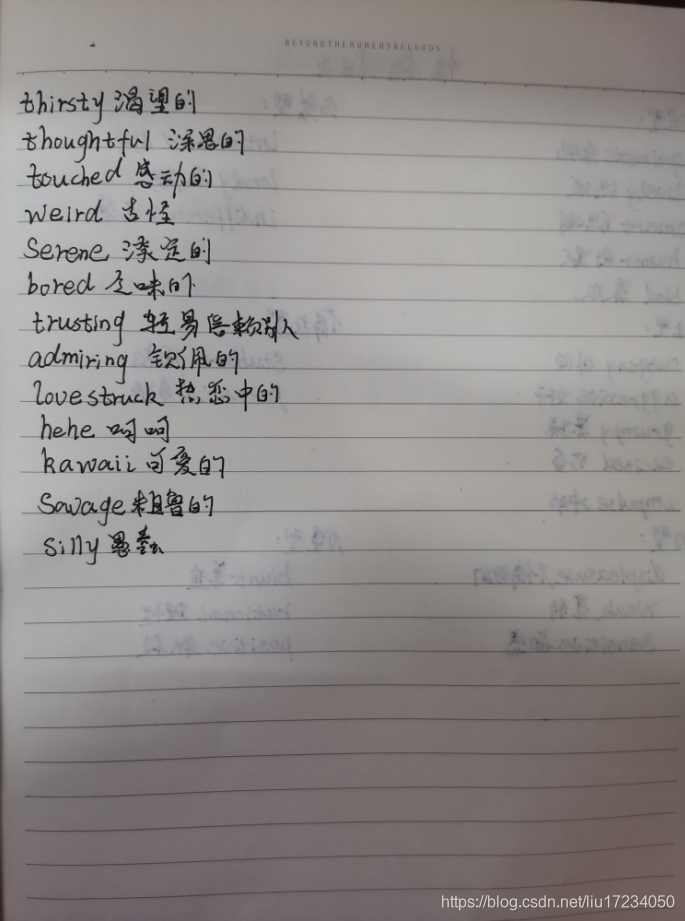 BEYONDTHEMOMENTRECORDS
thirsty 渴望的
thoughtful 深思的
touched 感动的
weird 古怪
Serene 淡定的
bored 乏味的
trusting 轻易信赖别人
admiring 钦佩的
lovestruck 热恋中的
hehe 呵呵
kawaii 可爱的
Savage 粗鲁的
silly 愚蠢
https://blog.csdn.net/liu17234050